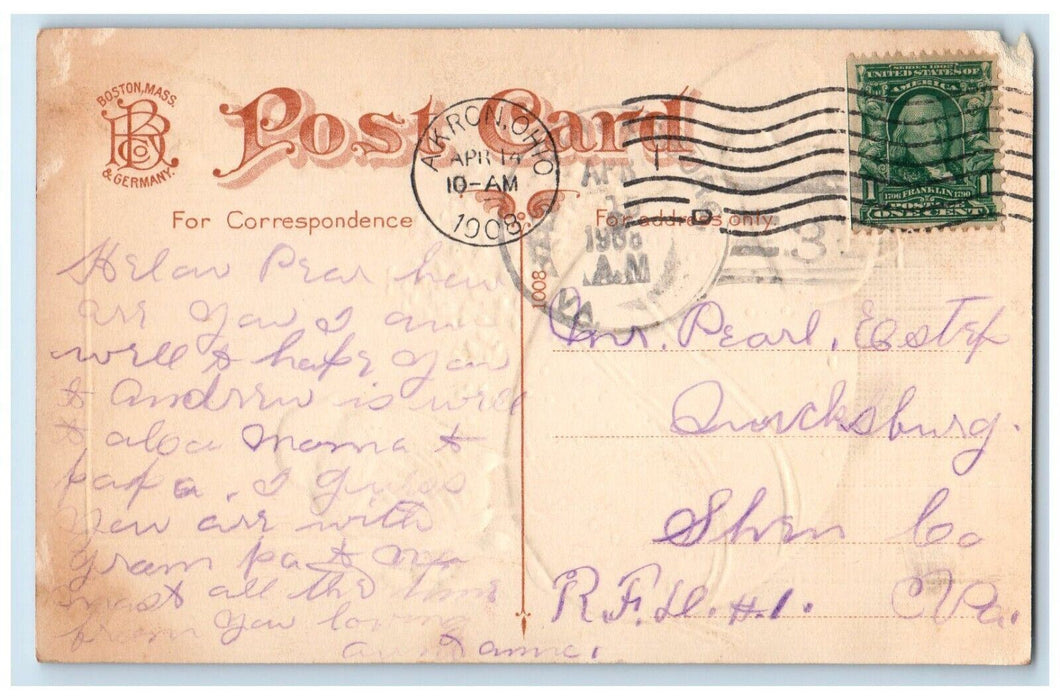 BOSTON, MASS.
BR Co
& GERMANY.
Post Card
AKRON, OHIO
APR 14
10-AM
1908
APR
1908
A.M
VA
D
3
SERIES 1902
UNITED STATES OF
AMERICA
1706 FRANKLIN 1790
POSTAGE
1 ONE CENT 1
For Correspondence
For address only.
1008
Helow Pear how
are you I am
well & hope you
& Andrew is well
& aloa Mama &
papa. I guess
you are with
gram pa &
most all the time
from you loving
aunt
Mr. Pearl, Estep
Quicksburg.
Shen Co
R.F.D. #1. Va.